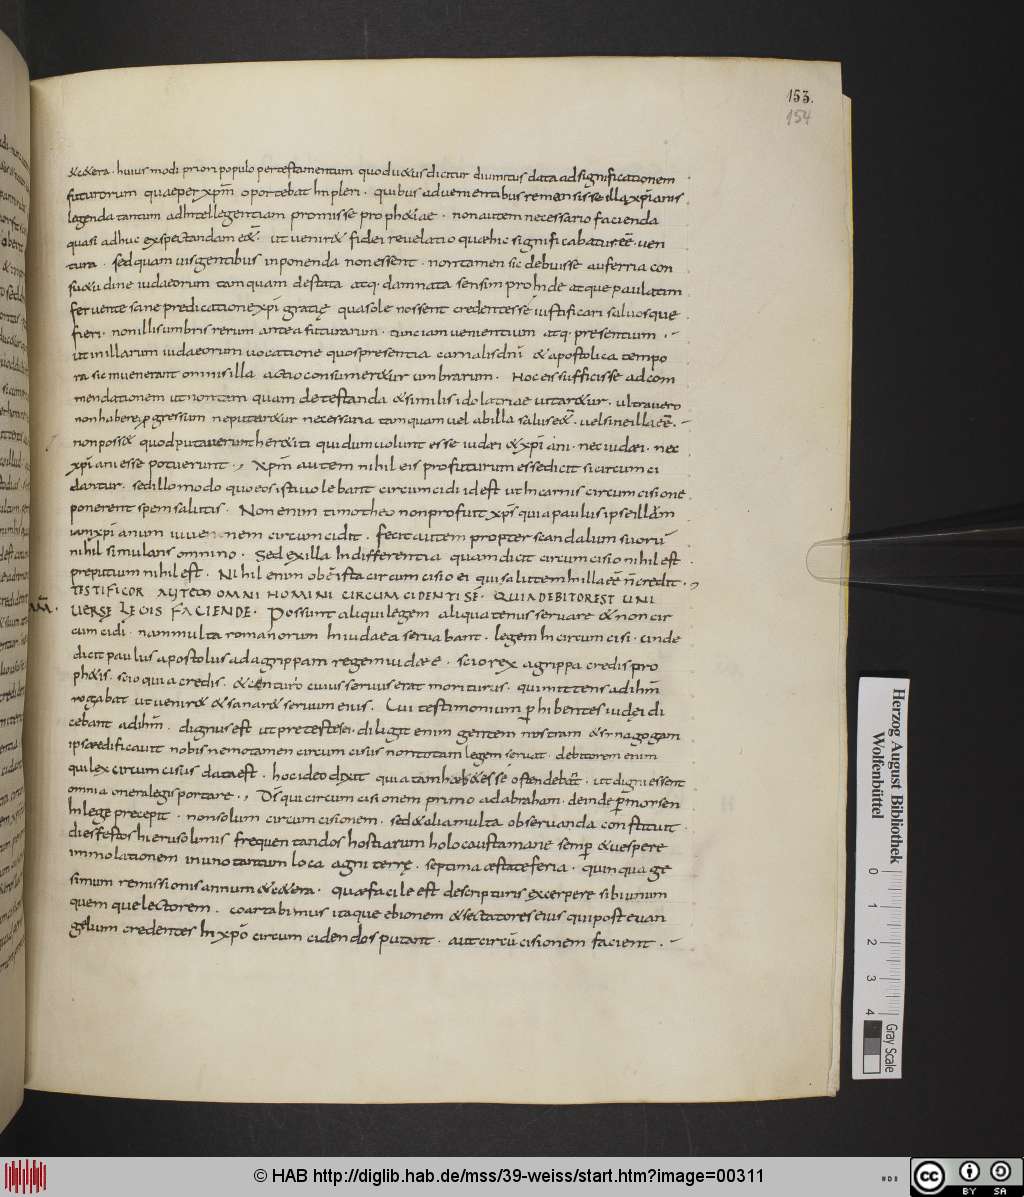 153.
154
&c&era · huius modi priori populo pertestamentum quodu&us dicitur diuinitus data adsignificationem
futurorum quaeper xpm̄ oportebat Impleri · quibus aduenientibus remansisse illa xp̄ianis
legenda tantum adIntellegentiam promisse proph&iae · nonautem necessario facienda
quasi adhuc exspectandam e&̄ · ut uenir& fidei reuelatio quaehic significabatur ee᷎ · uen
tura · sed quam uis gentibus inponenda non essent · non tamen sic debuisse auferri a con
su&u dine iudaeorum tam quam de stata atq· damnata sensim proInde atque paulatim
feruente sane predicatione xp̄i gratię quasole nossent credentes sé iustificari saluosque
fieri · nonillis umbris rerum antea futurarum · tunc iam uenientium atq· presentium ·
ut inillarum iudaeorum uocatione quos presentia carnalis dnī & apostolica tempo
ra sic inuenerant omnis illa actio consumer&ur umbrarum · Hoc ei sufficisse ad com
mendationem ut non tam quam detestanda & similis idolatriae uitar&ur · ultra uero
non habere ꝓgressum ne putar&ur necessaria tam quam uel ab illa salus e&̄ · uel sine illa eē ·
non poss& quod putauerunt her&ici qui dum uolunt esse iudaei & xp̄i ani · nec iudaei · nec
xp̄i ani esse potuerunt · Xpm̄ autem nihil eis profuturum esse dicit si circum ci
dantur · sed illo modo quo eos isti uolebant circum cidi id est ut In carnis circum cisione
ponerent spem salutis · Non enim timotheo non profuit xp̄s quia paulus ipse illum
iam xp̄i anum iuuenem circum cidit · Fecit autem propter scandalum suorū
nihil simulans omnino · Sed ex illa Indifferentia quam dicit circum cisio nihil est ·
preputium nihil est · Nihil enim obē ista circum cisio ei qui salutem In illa eē n̄ credit ·
TESTIFICOR AUTEM OMNI HOMINI CIRCUMCIDENTI SÉ · QUIA DEBITOR EST UNI
UERSĘ LEGIS FACIENDE · Possunt aliqui legem aliqua tenus seruare & non cir
cum cidi · nam multa romanorum In iudaea seruabant · legem In circum cisi · unde
dicit paulus apostolus ad agrippam regem iudaeae · scio rex agrippa credis pro
ph&is · scio quia credis · & centurio cuius seruus erat moriturus · qui mittens ad ihm̄
rogabat ut uenir& & sanar& seruum eius · Cui testimonium ꝑhibentes iudęi di
cebant ad ihm̄ · dignus est ut pretestes ei · diligit enim gentem nostram & sinagogam
ipse ædificauit nobis non tamen circum cisus non totam legem seruat · debitorem enim
qui lex circum cisus data est · hoc ideo dixit quia tam hab&esse ostendebat · ut digni essent
omnia onera legis portare · Dś qui circum cisionem primo ad abraham · deinde ꝑ morsen
In lege precepit · non solum circum cisionem · sed & alia multa obseruanda constituit ·
dies festos hierusolimis frequentandos hostiarum holocausta mane semꝑ & uespere
immolationem in uno tantum loca agni terrę · septima æstate feria · quinquage
simum remissionis annum & c&era · Quæ facile est de scripturis excerpere sibi unum
quem que lectorem · coartabimus itaque ebionem & sectatores eius qui post euan
gelium credentes In xpō circum cidendos putant · aut circū cisionem facient ·
Herzog August Bibliothek
Wolfenbüttel
0 1 2 3 4
Gray Scale
© HAB http://diglib.hab.de/mss/39-weiss/start.htm?image=00311
cc BY SA